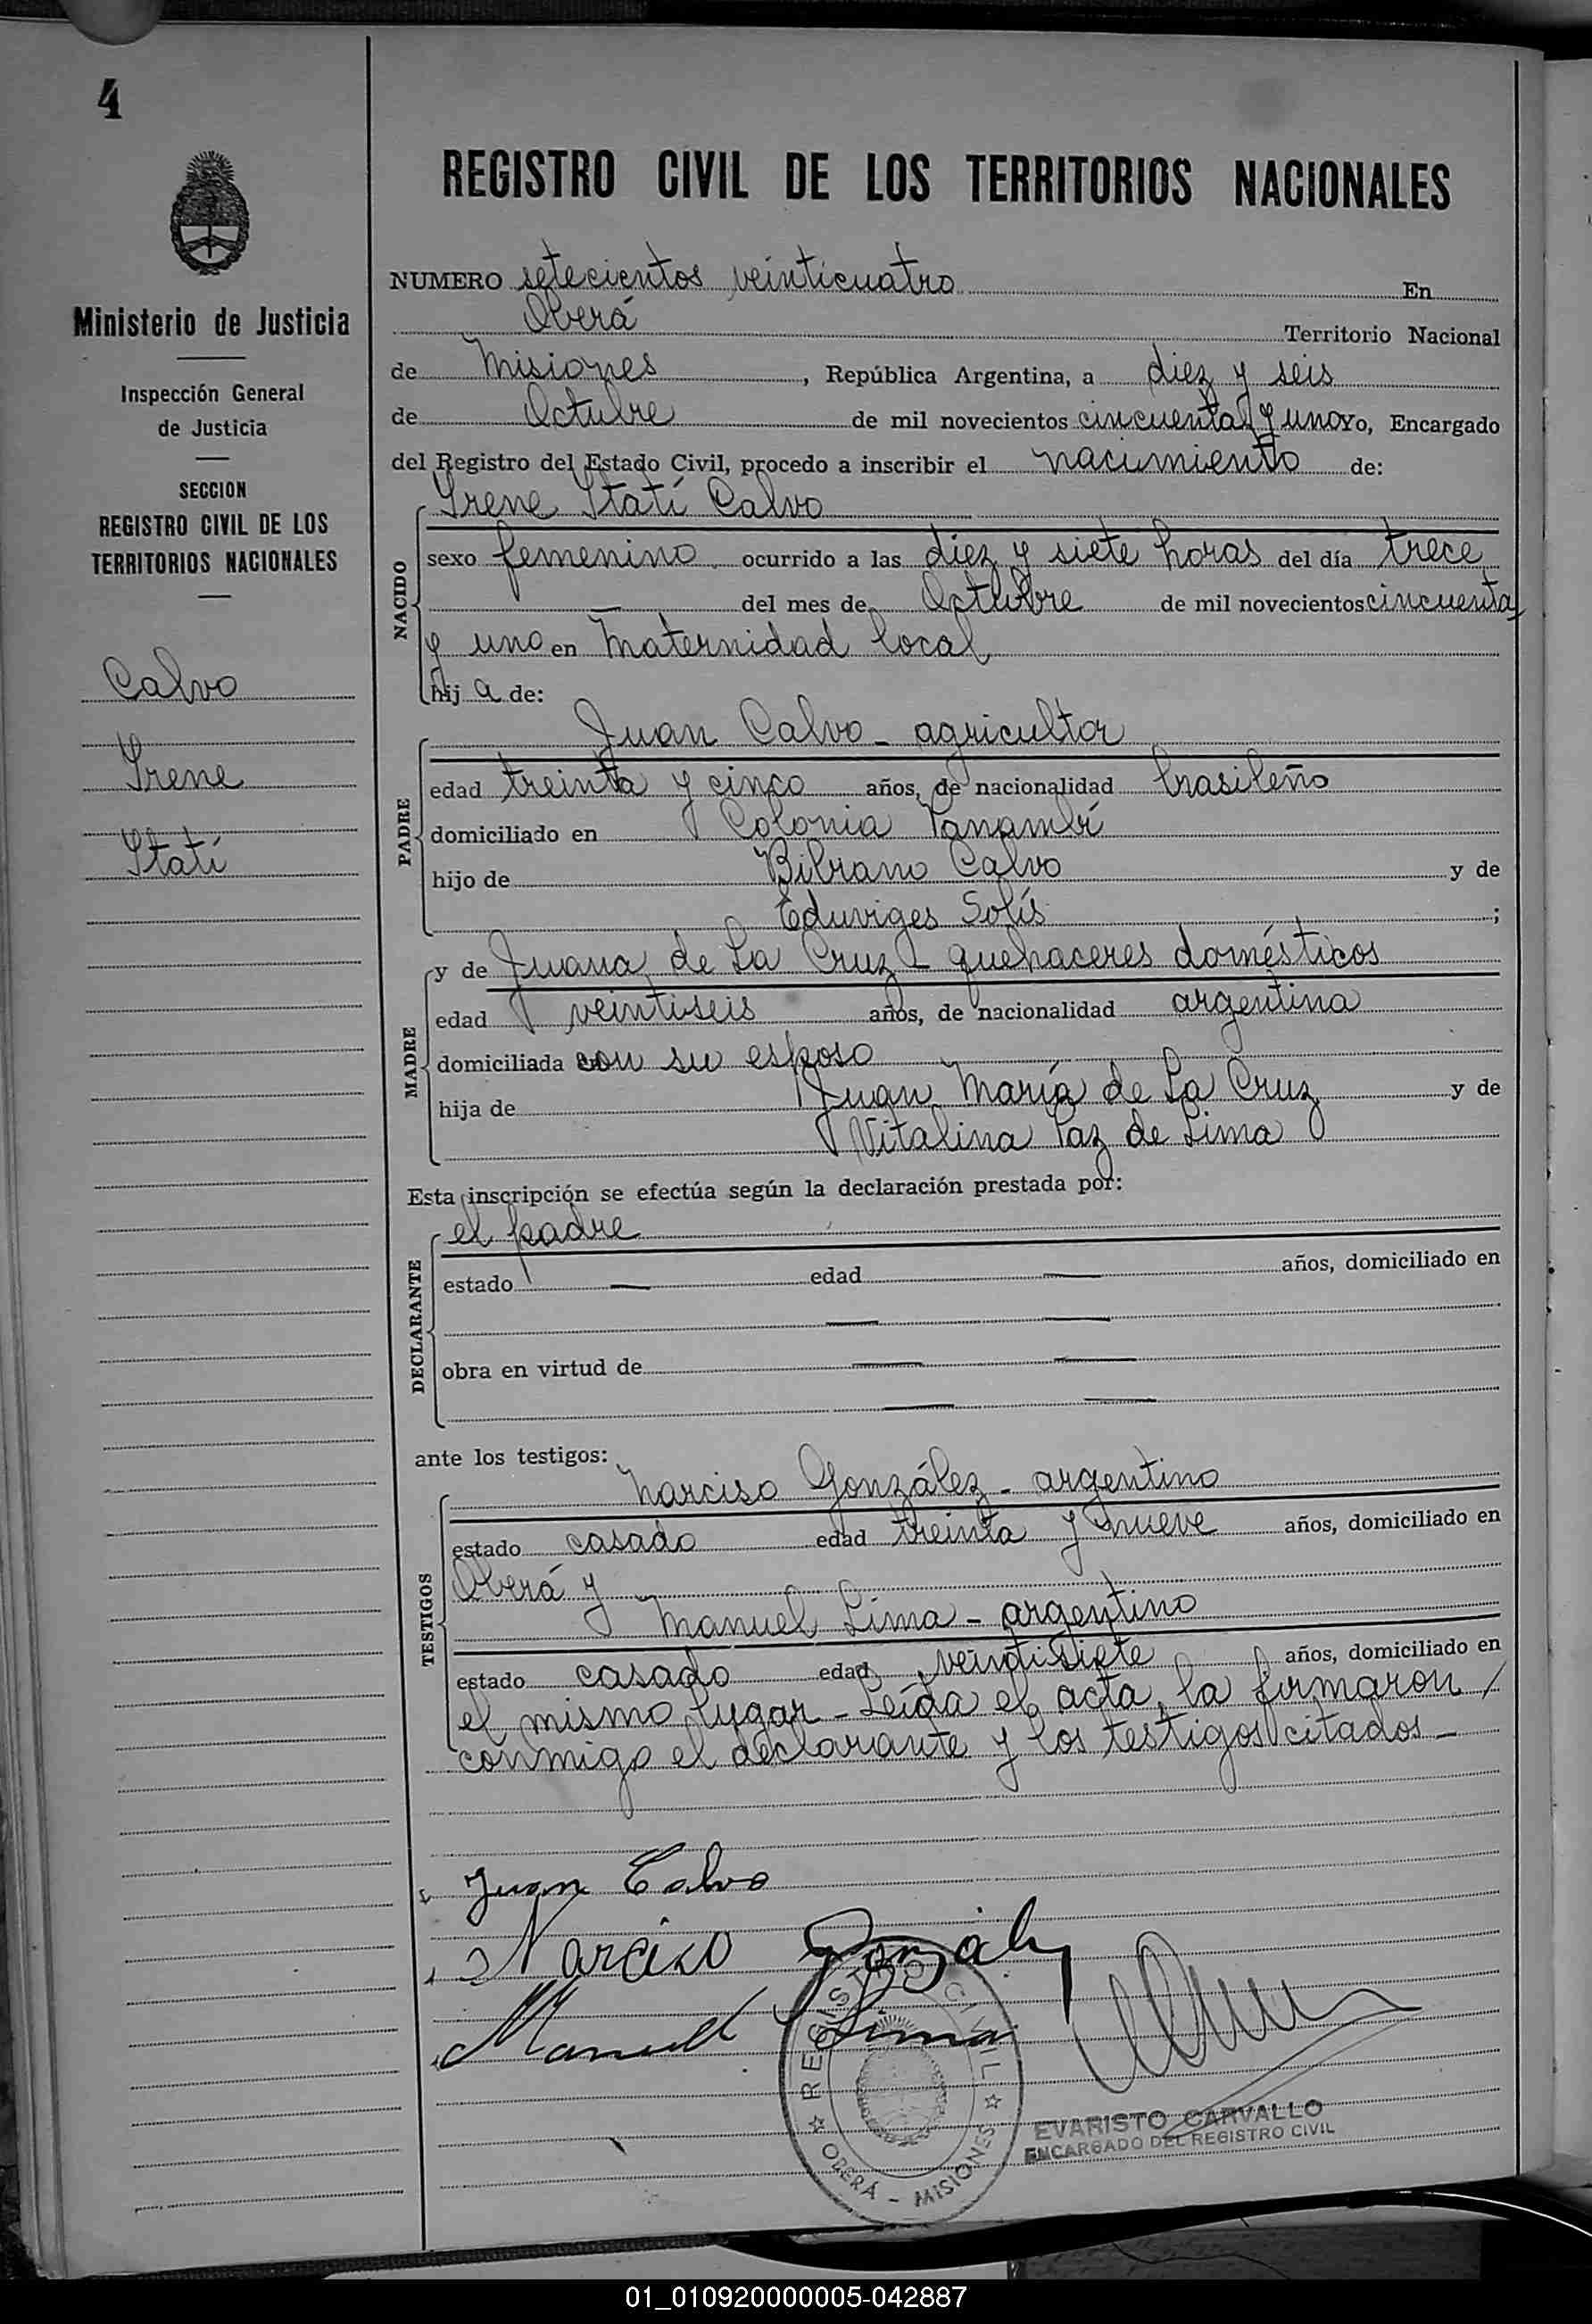 4
Ministerio de Justicia
Inspección General
de Justicia
SECCION
REGISTRO CIVIL DE LOS
TERRITORIOS NACIONALES
Calvo
Irene
Itatí
REGISTRO CIVIL DE LOS TERRITORIOS NACIONALES
NUMERO setecientos veinticuatro En
Oberá Territorio Nacional
de Misiones, República Argentina, a diez y seis
de Octubre de mil novecientos cincuenta y uno Yo, Encargado
del Registro del Estado Civil, procedo a inscribir el nacimiento de:
NACIDO
Irene Itatí Calvo
sexo femenino ocurrido a las diez y siete horas del día trece
— del mes de Octubre de mil novecientos cincuenta
y uno en Maternidad local
hij a de:
PADRE
Juan Calvo - agricultor
edad treinta y cinco años, de nacionalidad brasileño
domiciliado en Colonia Panambí
hijo de Bibiano Calvo y de
Eduviges Solís;
MADRE
y de Juana de La Cruz - quehaceres domésticos
edad veintiseis años, de nacionalidad argentina
domiciliada con su esposo
hija de Juan María de La Cruz y de
Vitalina Paz de Lima
Esta inscripción se efectúa según la declaración prestada por:
DECLARANTE
el padre
estado — edad — años, domiciliado en
— —
obra en virtud de — —
— —
ante los testigos:
TESTIGOS
Narciso González - argentino
estado casado edad treinta y nueve años, domiciliado en
Oberá y
Manuel Lima - argentino
estado casado edad veintisiete años, domiciliado en
el mismo lugar - Leída el acta, la firmaron /
conmigo el declarante y los testigos citados -
Juan Calvo
Narciso Gonzáles
Manuel Lima
REGISTRO CIVIL
OBERÁ - MISIONES
EVARISTO CARVALLO
ENCARGADO DEL REGISTRO CIVIL
01_010920000005-042887